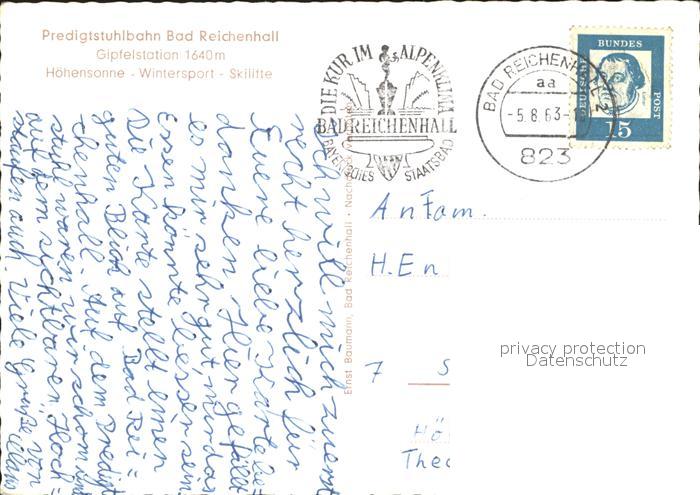 Predigtstuhlbahn Bad Reichenhall
Gipfelstation 1640m
Höhensonne - Wintersport - Skilifte
DIE KUR IM ALPENKLIMA
BAD REICHENHALL
BAYERISCHES STAATSBAD
BAD REICHENHALL 2
aa
-5.8.63-
823
DEUTSCHE BUNDES POST
15
Ich will mich zuerst
recht herzlich für
Euere liebe Karte be
danken. Hier gefällt
es mir sehr gut, nur das
Essen könnte besser sein.
Die Karte stellt einen
guten Blick auf Bad Rei=
chenhall. Auf dem Predigt
stuhl waren wir schon und
auf dem sichtbaren Hoch=
staufen auch. Viele Grüße von
Ernst Baumann, Bad Reichenhall
An Fam.
H. En
7 S
Hö
Theo
privacy protection
Datenschutz